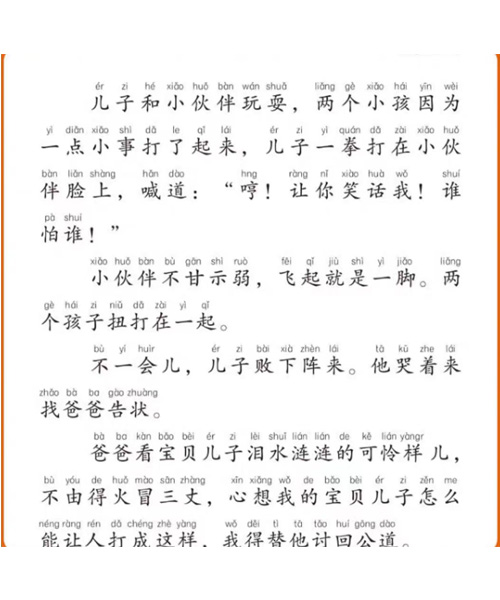 ér zi hé xiǎo huǒ bàn wán shuǎ liǎng gè xiǎo hái yīn wèi
儿子和小伙伴玩耍，两个小孩因为
yì diǎn xiǎo shì dǎ le qǐ lái ér zi yì quán dǎ zài xiǎo huǒ
一点小事打了起来，儿子一拳打在小伙
bàn liǎn shàng hǎn dào hng ràng nǐ xiào huà wǒ shuí
伴脸上，喊道：“哼！让你笑话我！谁
pà shuí
怕谁！”
xiǎo huǒ bàn bù gān shì ruò fēi qǐ jiù shì yì jiǎo liǎng
小伙伴不甘示弱，飞起就是一脚。两
gè hái zi niǔ dǎ zài yì qǐ
个孩子扭打在一起。
bù yí huìr ér zi bài xià zhèn lái tā kū zhe lái
不一会儿，儿子败下阵来。他哭着来
zhǎo bà ba gào zhuàng
找爸爸告状。
bà ba kàn bǎo bèi ér zi lèi shuǐ lián lián de kě lián yàngr
爸爸看宝贝儿子泪水涟涟的可怜样儿，
bù yóu de huǒ mào sān zhàng xīn xiǎng wǒ de bǎo bèi ér zi zěn me
不由得火冒三丈，心想我的宝贝儿子怎么
néng ràng rén dǎ chéng zhè yàng wǒ děi tì tā tǎo huí gōng dào
能让人打成这样，我得替他讨回公道。